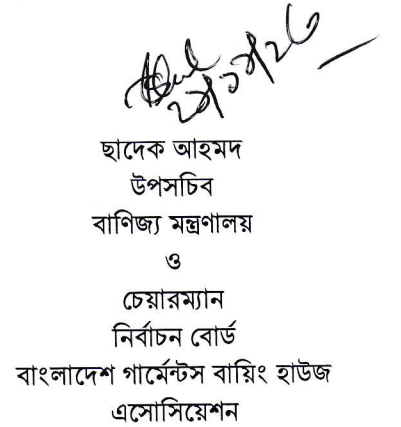 ছাদেক আহমদ
উপসচিব
বাণিজ্য মন্ত্রণালয়
ও
চেয়ারম্যান
নির্বাচন বোর্ড
বাংলাদেশ গার্মেন্টস বায়িং হাউজ
এসোসিয়েশন